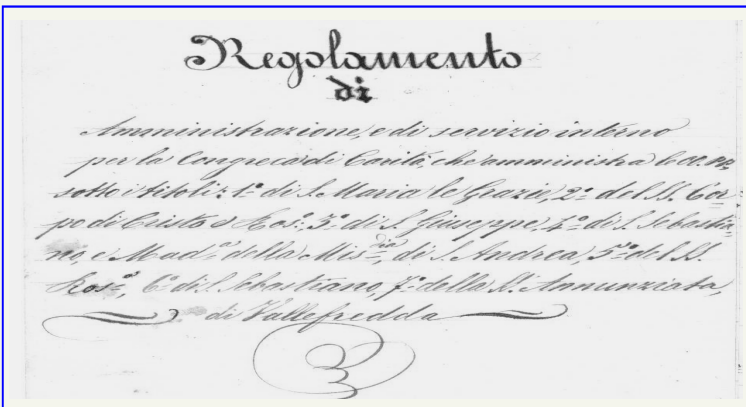 Regolamento
di
Amministrazione, e di servizio interno
per la Congrega di Carità, che amministra le OO. PP.
sotto i titoli: 1º di S. Maria le Grazie, 2º del SS. Cor=
po di Cristo e Ros.º, 3º di S. Giuseppe, 4º di S. Sebastia=
no, e Mad.ª della Mis.dia, di S. Andrea, 5º del SS.
Ros.º, 6º di S. Sebastiano, 7º della SS. Annunziata,
di Vallefredda